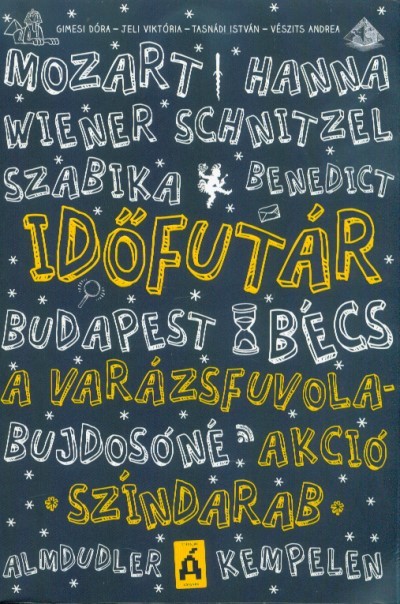 GIMESI DÓRA – JELI VIKTÓRIA – TASNÁDI ISTVÁN – VÉSZITS ANDREA
MOZART HANNA
WIENER SCHNITZEL
SZABIKA BENEDICT
IDŐFUTÁR
BUDAPEST BÉCS
A VARÁZSFUVOLA-
BUJDOSÓNÉ AKCIÓ
SZÍNDARAB
ALMDUDLER Á KEMPELEN